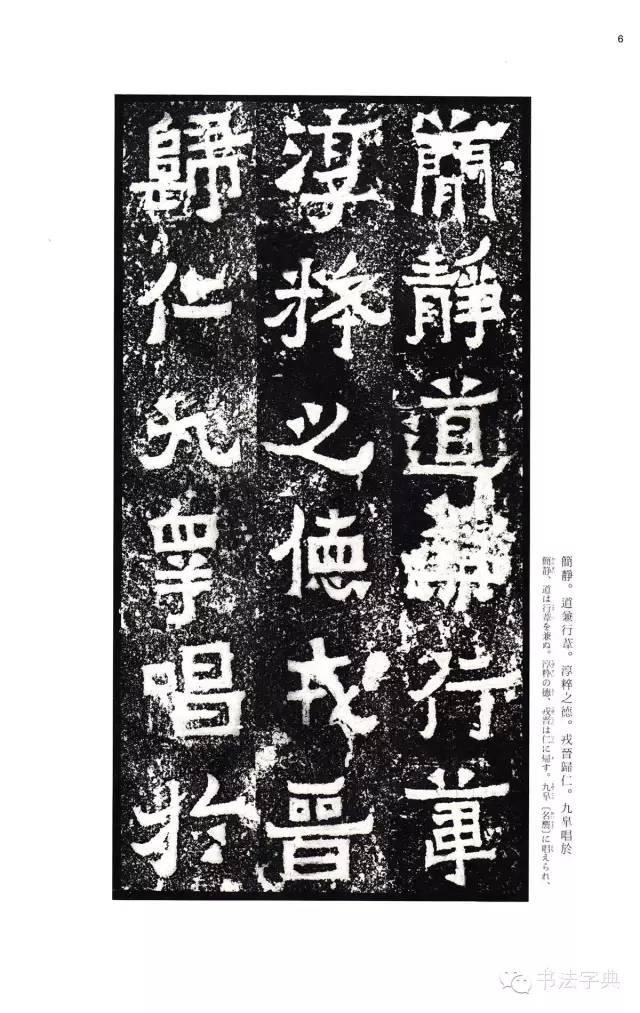 6
簡靜道兼行葦
淳粹之德戎晉
歸仁九皐唱於
簡靜。道兼行葦。淳粹之德。戎晉歸仁。九皐唱於
簡静、道は行葦を兼ぬ。淳粋の徳、戎晉は仁に帰す。九皐に唱えられ、
书法字典